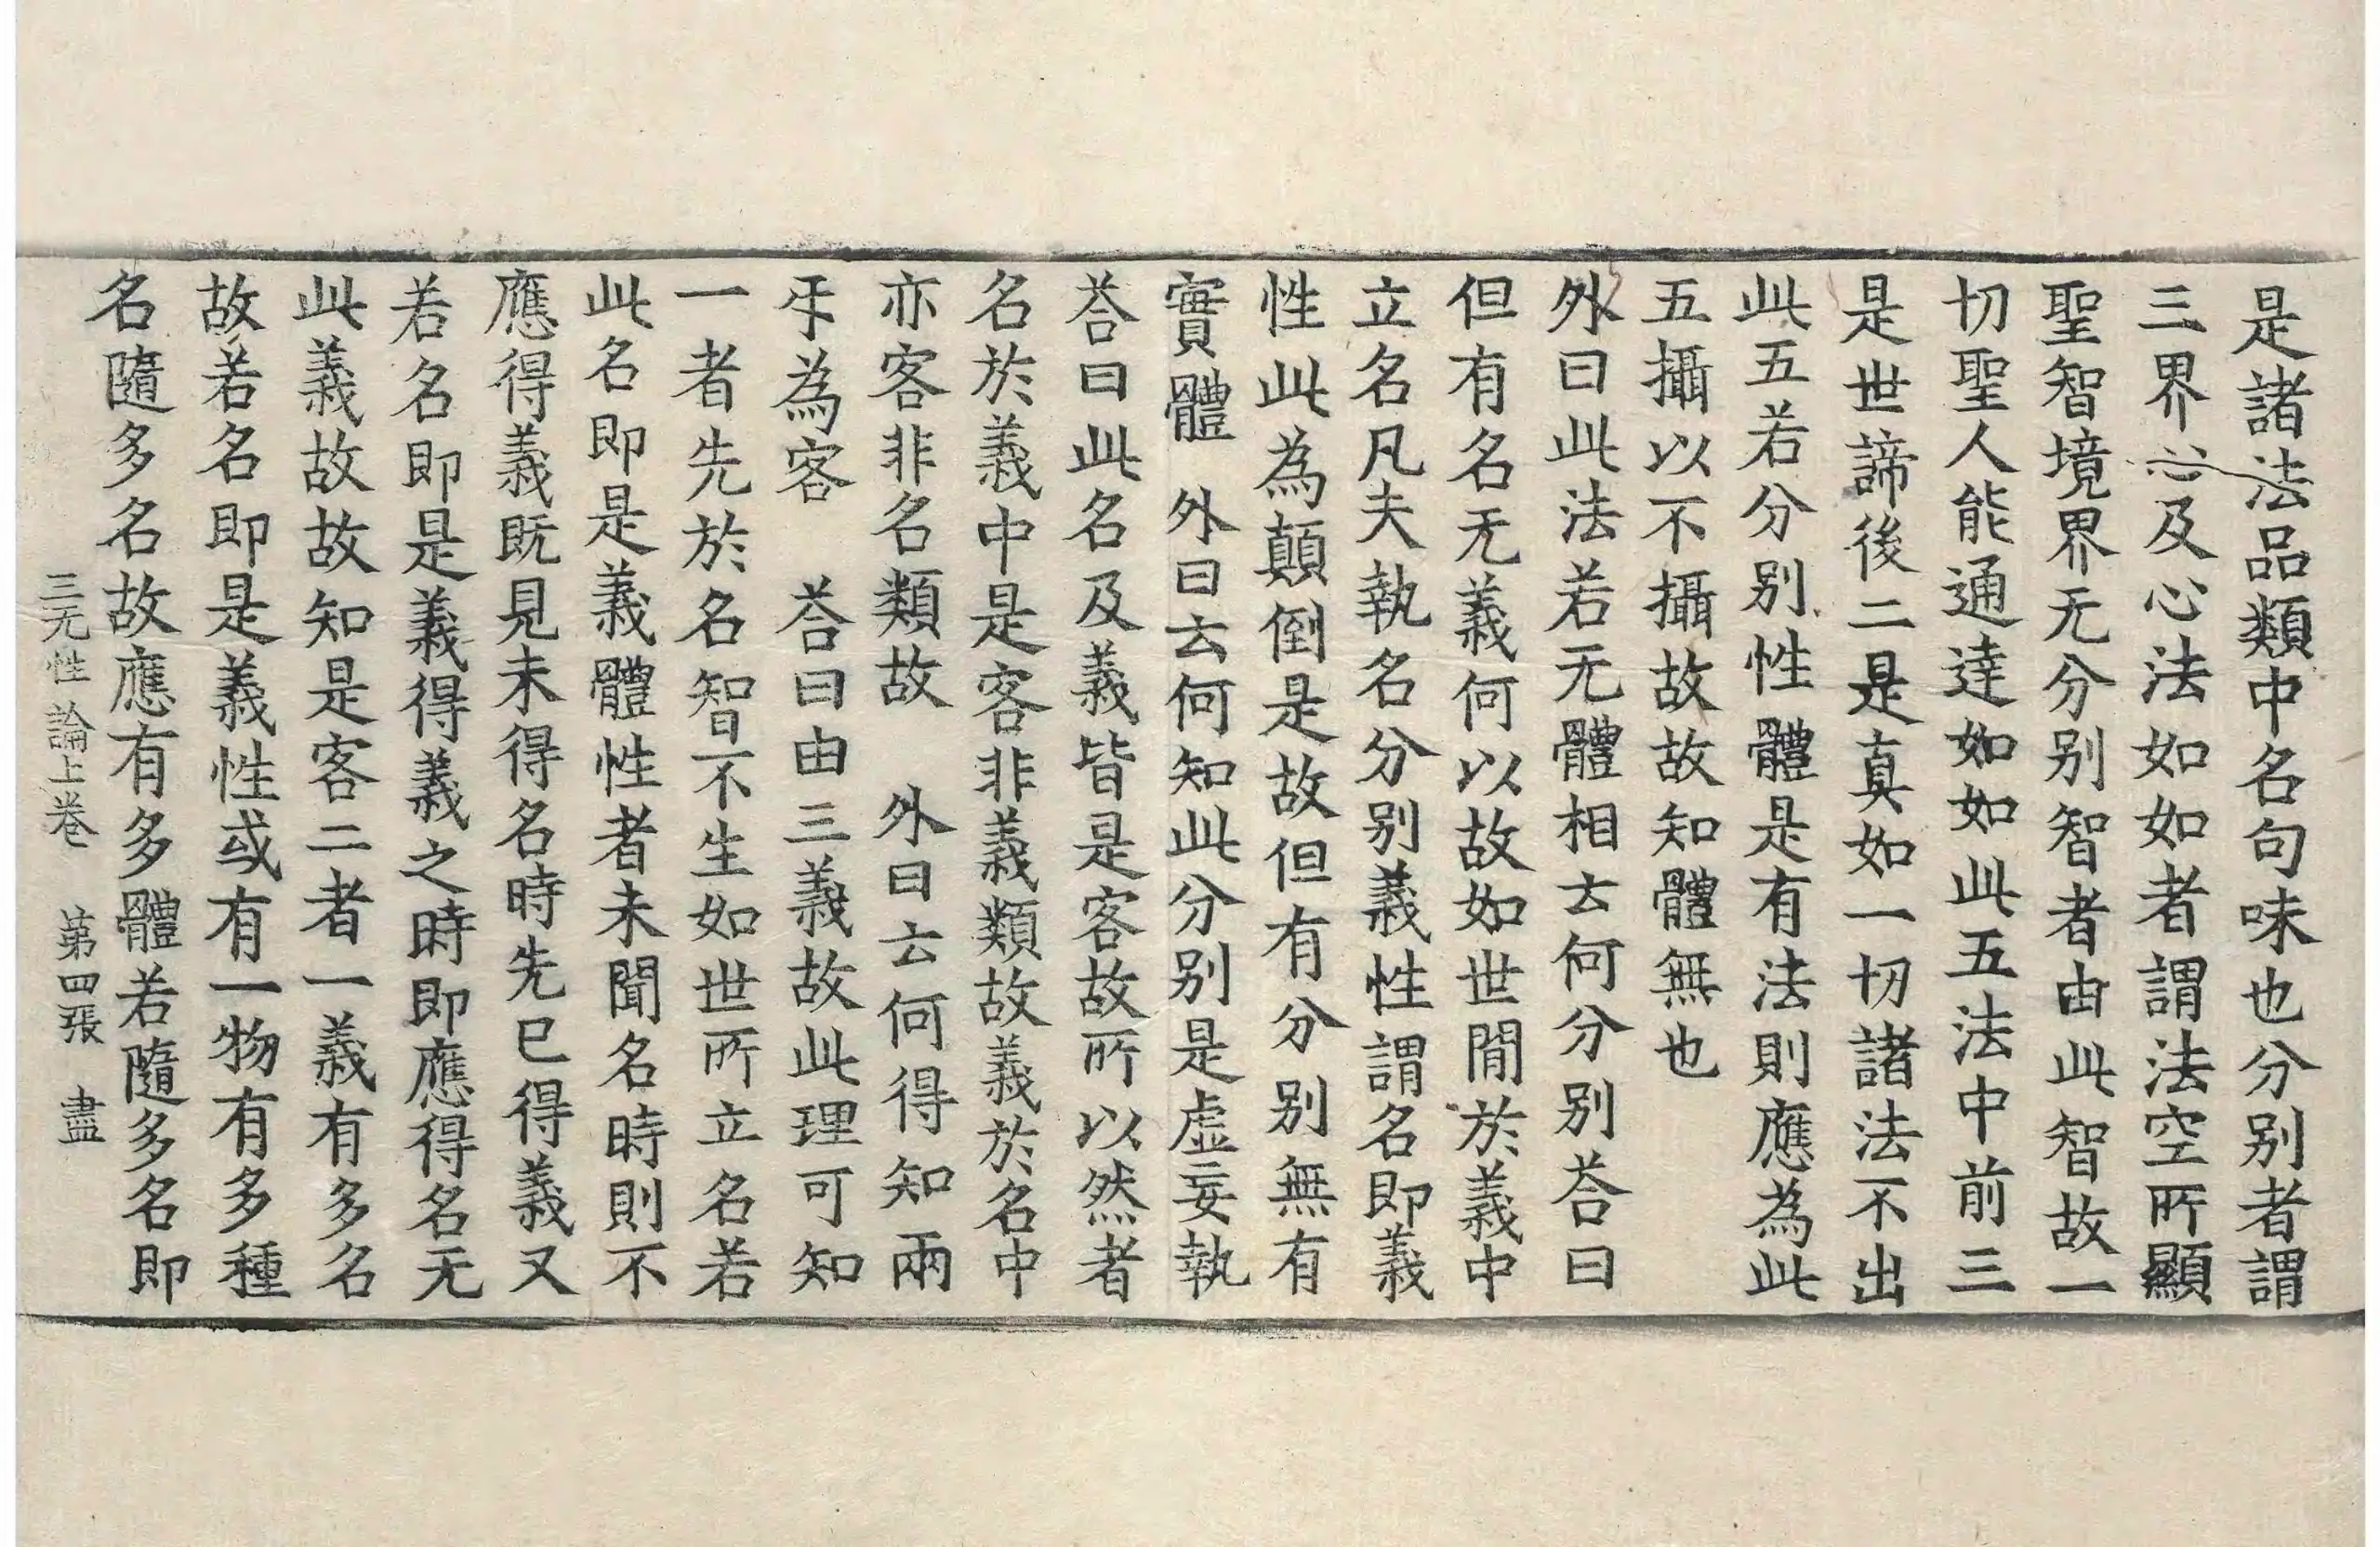 是諸法品類中名句味也分別者謂
三界心及心法如如者謂法空所顯
聖智境界无分別智者由此智故一
切聖人能通達如如此五法中前三
是世諦後二是真如一切諸法不出
此五若分別性體是有法則應為此
五攝以不攝故故知體無也
外曰此法若无體相云何分別荅曰
但有名无義何以故如世間於義中
立名凡夫執名分別義性謂名即義
性此為顛倒是故但有分別無有
實體　外曰云何知此分別是虛妄執
荅曰此名及義皆是客故所以然者
名於義中是客非義類故義於名中
亦客非名類故　外曰云何得知兩
㸦為客　荅曰由三義故此理可知
一者先於名智不生如世所立名若
此名即是義體性者未聞名時則不
應得義既見未得名時先已得義又
若名即是義得義之時即應得名无
此義故故知是客二者一義有多名
故若名即是義性或有一物有多種
名隨多名故應有多體若隨多名即
三无性論上卷　第四張　盡